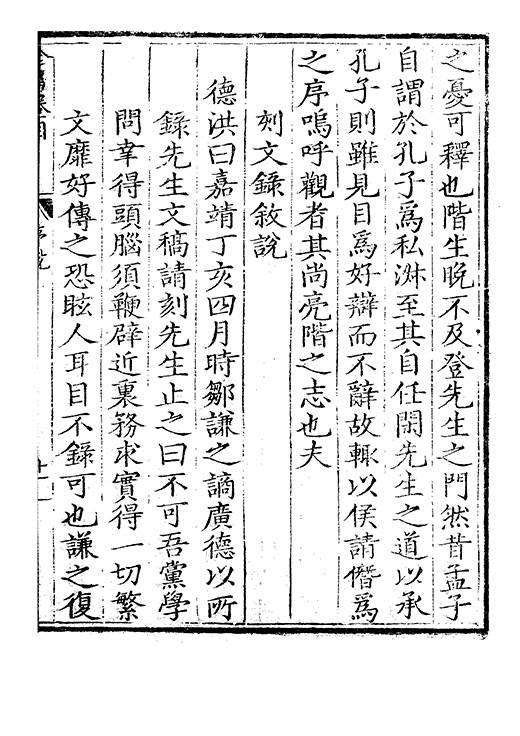 之憂可釋也階生晚不及登先生之門然昔孟子
自謂於孔子爲私淑至其自任閑先生之道以承
孔子則雖見目爲好辯而不辭故輙以侯請僭爲
之序嗚呼觀者其尚亮階之志也夫
刻文錄敘說
德洪曰嘉靖丁亥四月時鄒謙之謫廣德以所
錄先生文稿請刻先生止之曰不可吾黨學
問幸得頭腦須鞭辟近裏務求實得一切繁
文靡好傳之恐眩人耳目不錄可也謙之復
序說